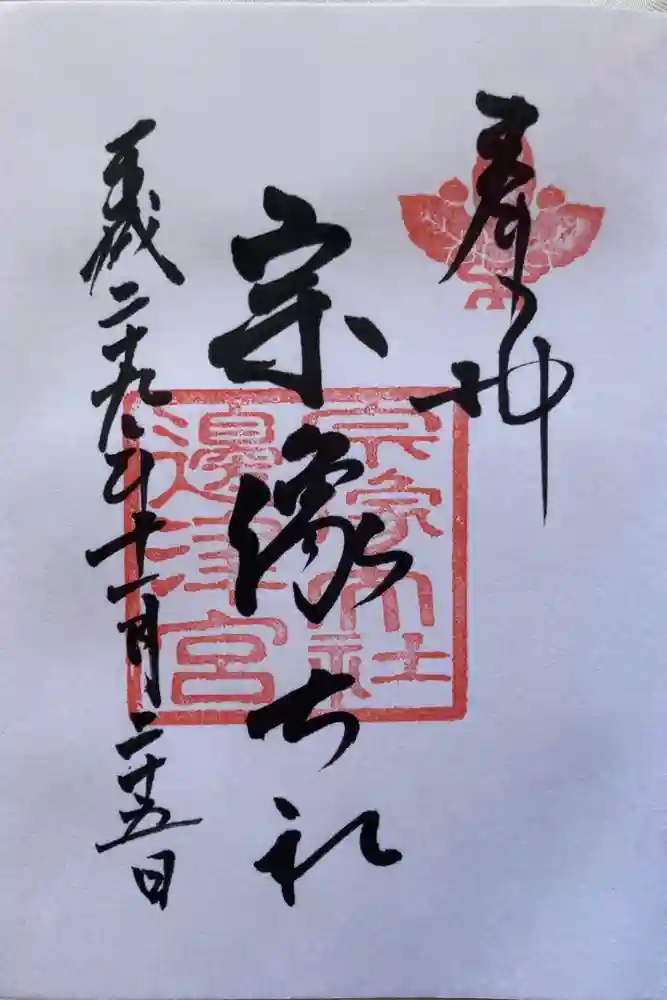 奉拝
宗像大社
平成二十九年十一月二十五日
宗像大社
邊津宮